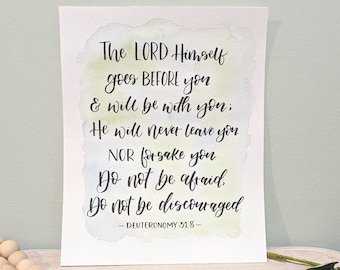 The LORD Himself
goes BEFORE you
& will be with you;
He will never leave you
NOR forsake you
Do not be afraid,
Do not be discouraged
- DEUTERONOMY 31:8 -